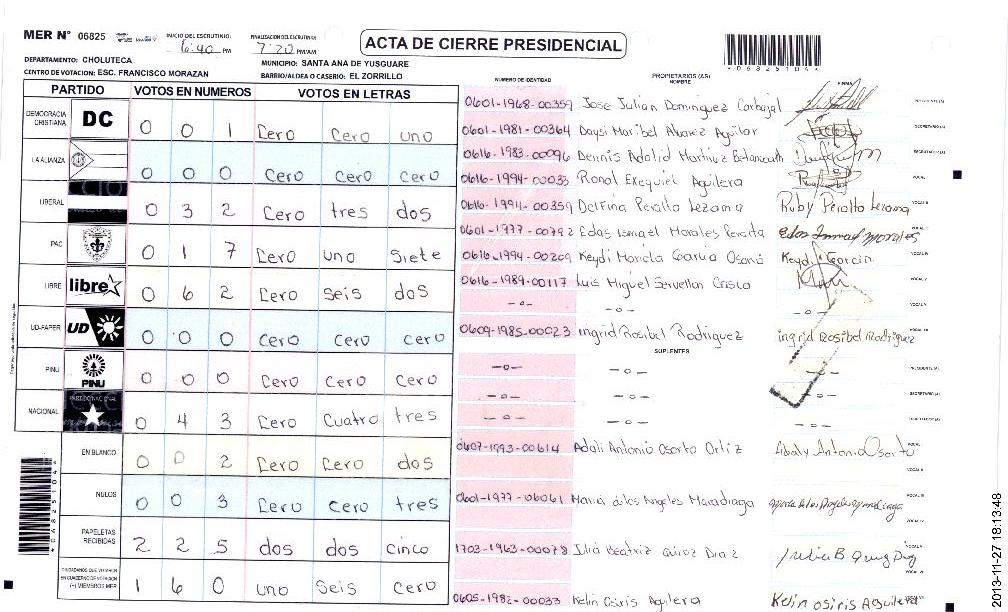 MER N° 06825
INICIO DEL ESCRUTINIO: 6:40 PM
FINALIZACION DEL ESCRUTINIO: 7:20 PM/AM
ACTA DE CIERRE PRESIDENCIAL
DEPARTAMENTO: CHOLUTECA
MUNICIPIO: SANTA ANA DE YUSGUARE
CENTRO DE VOTACION: ESC. FRANCISCO MORAZAN
BARRIO/ALDEA O CASERIO: EL ZORRILLO
PARTIDO VOTOS EN NUMEROS VOTOS EN LETRAS
DEMOCRACIA CRISTIANA DC 0 0 1 Cero Cero uno
LA ALIANZA 0 0 0 Cero Cero Cero
LIBERAL 0 3 2 Cero tres dos
PAC 0 1 7 Cero uno Siete
LIBRE libre 0 6 2 Cero Seis dos
UD-FAPER UD 0 0 0 Cero Cero Cero
PINU PINU 0 0 0 Cero Cero Cero
NACIONAL 0 4 3 Cero Cuatro tres
EN BLANCO 0 0 2 Cero Cero dos
NULOS 0 0 3 Cero Cero tres
PAPELETAS RECIBIDAS 2 2 5 dos dos cinco
CIUDADANOS QUE VOTARON EN CUADERNO DE VOTACION (+) MIEMBROS MER 1 6 0 uno Seis Cero
NUMERO DE IDENTIDAD PROPIETARIOS (AS) NOMBRE FIRMA
0601-1968-00359 Jose Julian Dominguez Carbajal
0601-1981-00364 Daysi Maribel Alvarez Aguilar
0616-1983-00096 Dennis Adalid Martinez Betancouth
0616-1994-00033 Ronal Exequiel Aguilera
0616-1994-00359 Delfina Peralta Lezama Ruby Peralta Lezama
0601-1977-00792 Edas Ismael Morales Peralta Edas Ismael Morales
0616-1994-00209 Keydi Mariela Garcia Osorio Keydi Garcia
0616-1989-00117 Luis Miguel Servellon
-0- -0- -0-
0609-1985-00023 Ingrid Rosibel Rodriguez ingrid Rosibel Rodriguez
SUPLENTES
-0- -0- -0-
-0- -0- -0-
-0- -0- -0-
0607-1993-00614 Adali Antonio Osorto Ortiz Adaly Antonio Osorto
0601-1977-00061 Maria delos Angeles Maradiaga
1703-1963-00078 Julia Beatriz Quiroz Diaz Julia B. Quiroz Diaz
0605-1982-00033 Kelin Osiris Aguilera Kelin osiris Aguilera
2013-11-27 18:13:48